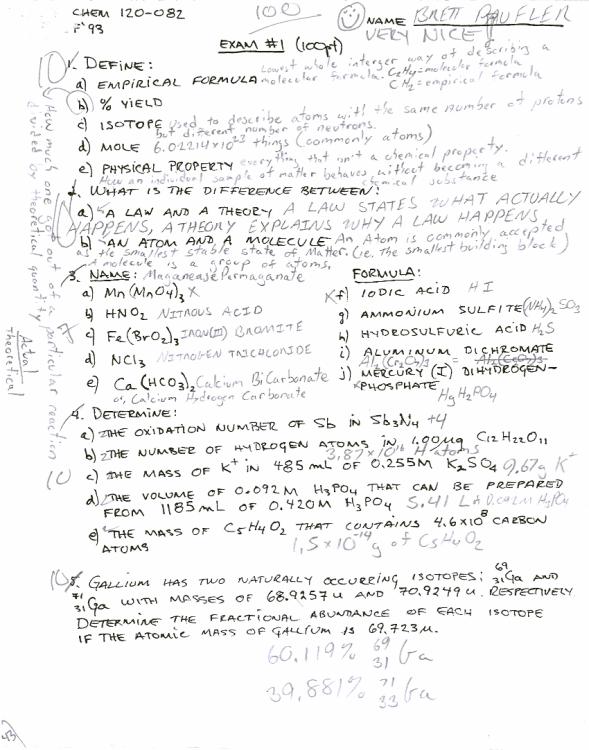 CHEM 120-082
F'93
100
NAME BRETT PAUFLER
VERY NICE!
EXAM #1 (100pt)
10
1. DEFINE:
a) EMPIRICAL FORMULA Lowest whole interger way of describing a molecular formula. C2H4=molecular formula CH2=empirical formula
b) % YIELD
How much one got out of a particular reaction divided by theoretical quantity
Actual
Theoretical
c) ISOTOPE used to describe atoms with the same number of protons but different number of neutrons.
d) MOLE 6.02214x10^23 things (commonly atoms)
e) PHYSICAL PROPERTY everything that isn't a chemical property. How an individual sample of matter behaves without becoming a different chemical substance
2. WHAT IS THE DIFFERENCE BETWEEN:
a) A LAW AND A THEORY A LAW STATES WHAT ACTUALLY
HAPPENS, A THEORY EXPLAINS WHY A LAW HAPPENS
b) AN ATOM AND A MOLECULE An Atom is commonly accepted
as the smallest stable state of Matter. (ie. the smallest building block)
A molecule is a group of atoms.
3. NAME: Maganease Permaganate
a) Mn(MnO4)3 X
b) HNO2 NITROUS ACID
c) Fe(BrO2)3 IRON(III) BROMITE
d) NCl3 NITROGEN TRICHLORIDE
e) Ca(HCO3)2 Calcium BiCarbonate
or, Calcium Hydrogen Carbonate
FORMULA:
X f) IODIC ACID HI
g) AMMONIUM SULFITE (NH4)2SO3
h) HYDROSULFURIC ACID H2S
i) ALUMINUM DICHROMATE
Al2(Cr2O7)3 =
j) MERCURY (I) DIHYDROGEN-
PHOSPHATE
HgH2PO4
4. DETERMINE:
a) THE OXIDATION NUMBER OF Sb IN Sb3N4 +4
b) THE NUMBER OF HYDROGEN ATOMS IN 1.00μg C12H22O11
3.87x10^16 H atoms
c) THE MASS OF K+ IN 485 mL OF 0.255M K2SO4 9.67g K+
10
d) THE VOLUME OF 0.092M H3PO4 THAT CAN BE PREPARED
FROM 1185 mL OF 0.420M H3PO4 5.41 L of 0.092M H3PO4
e) THE MASS OF C5H4O2 THAT CONTAINS 4.6x10^8 CARBON
ATOMS 1.5x10^-14 g of C5H4O2
10
5. GALLIUM HAS TWO NATURALLY OCCURRING ISOTOPES; 69 31 Ga AND
71 31 Ga WITH MASSES OF 68.9257u AND 70.9249u. RESPECTIVELY
DETERMINE THE FRACTIONAL ABUNDANCE OF EACH ISOTOPE
IF THE ATOMIC MASS OF GALLIUM IS 69.723u.
60.119% 69 31 Ga
39.881% 71 33 Ga